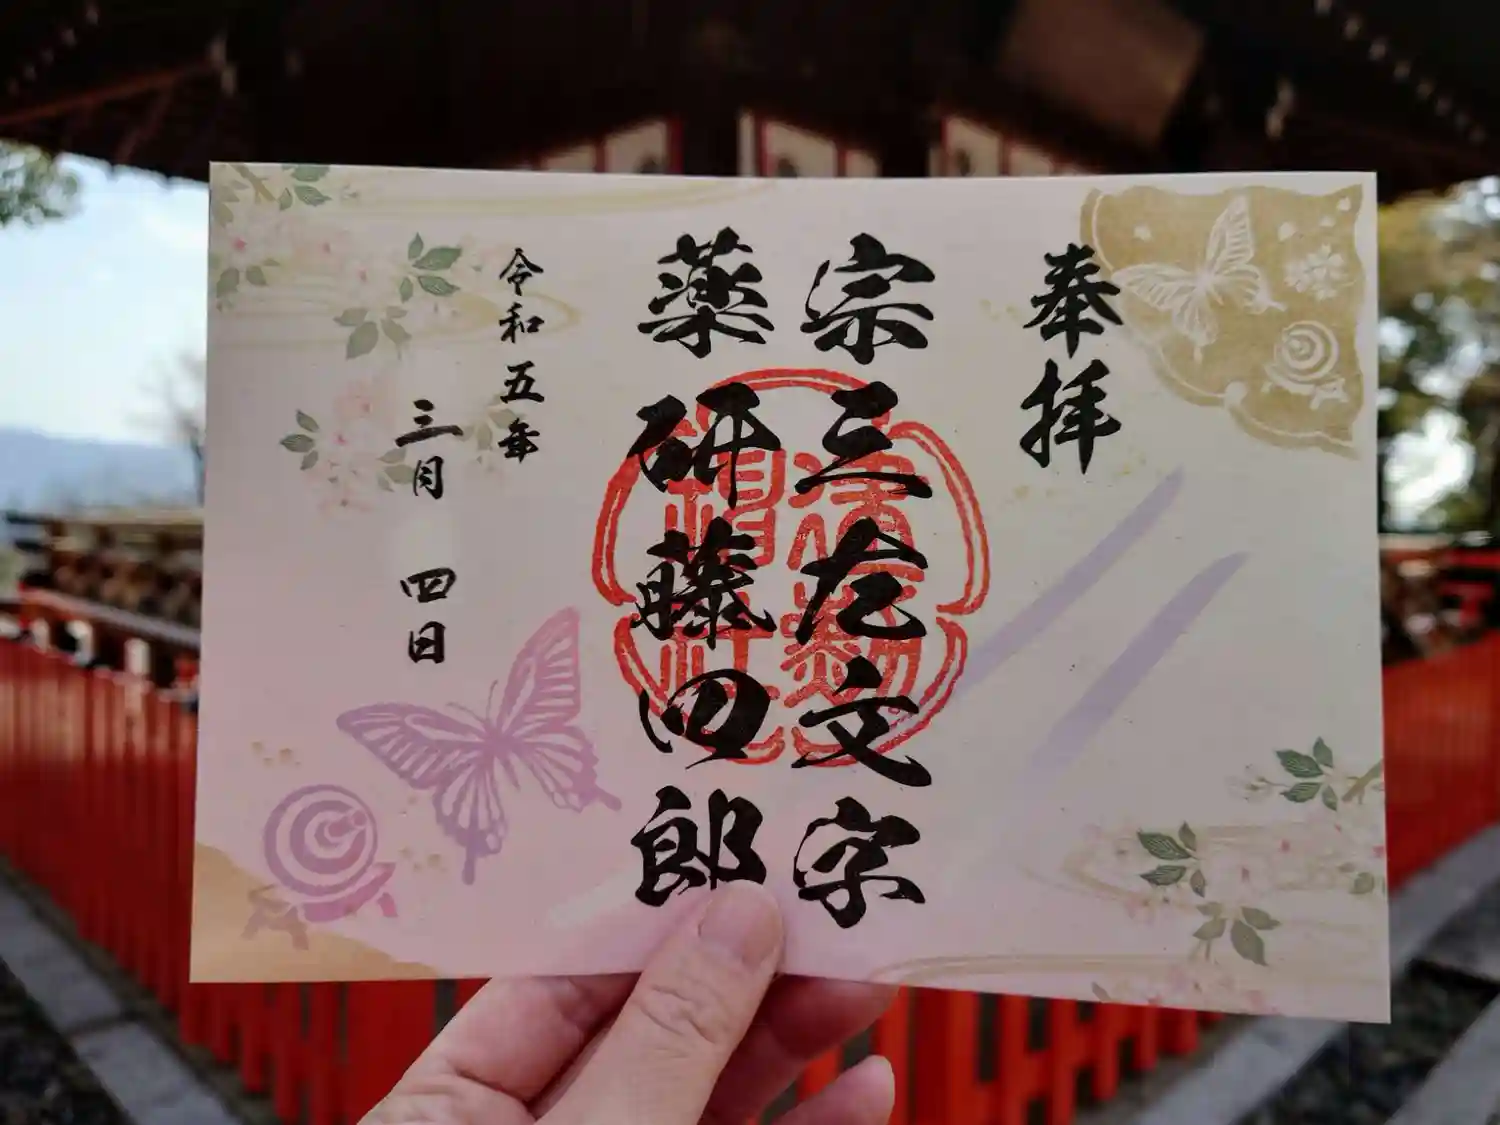 奉拝
宗三左文字
薬研藤四郎
令和五年
三月四日
建勲神社